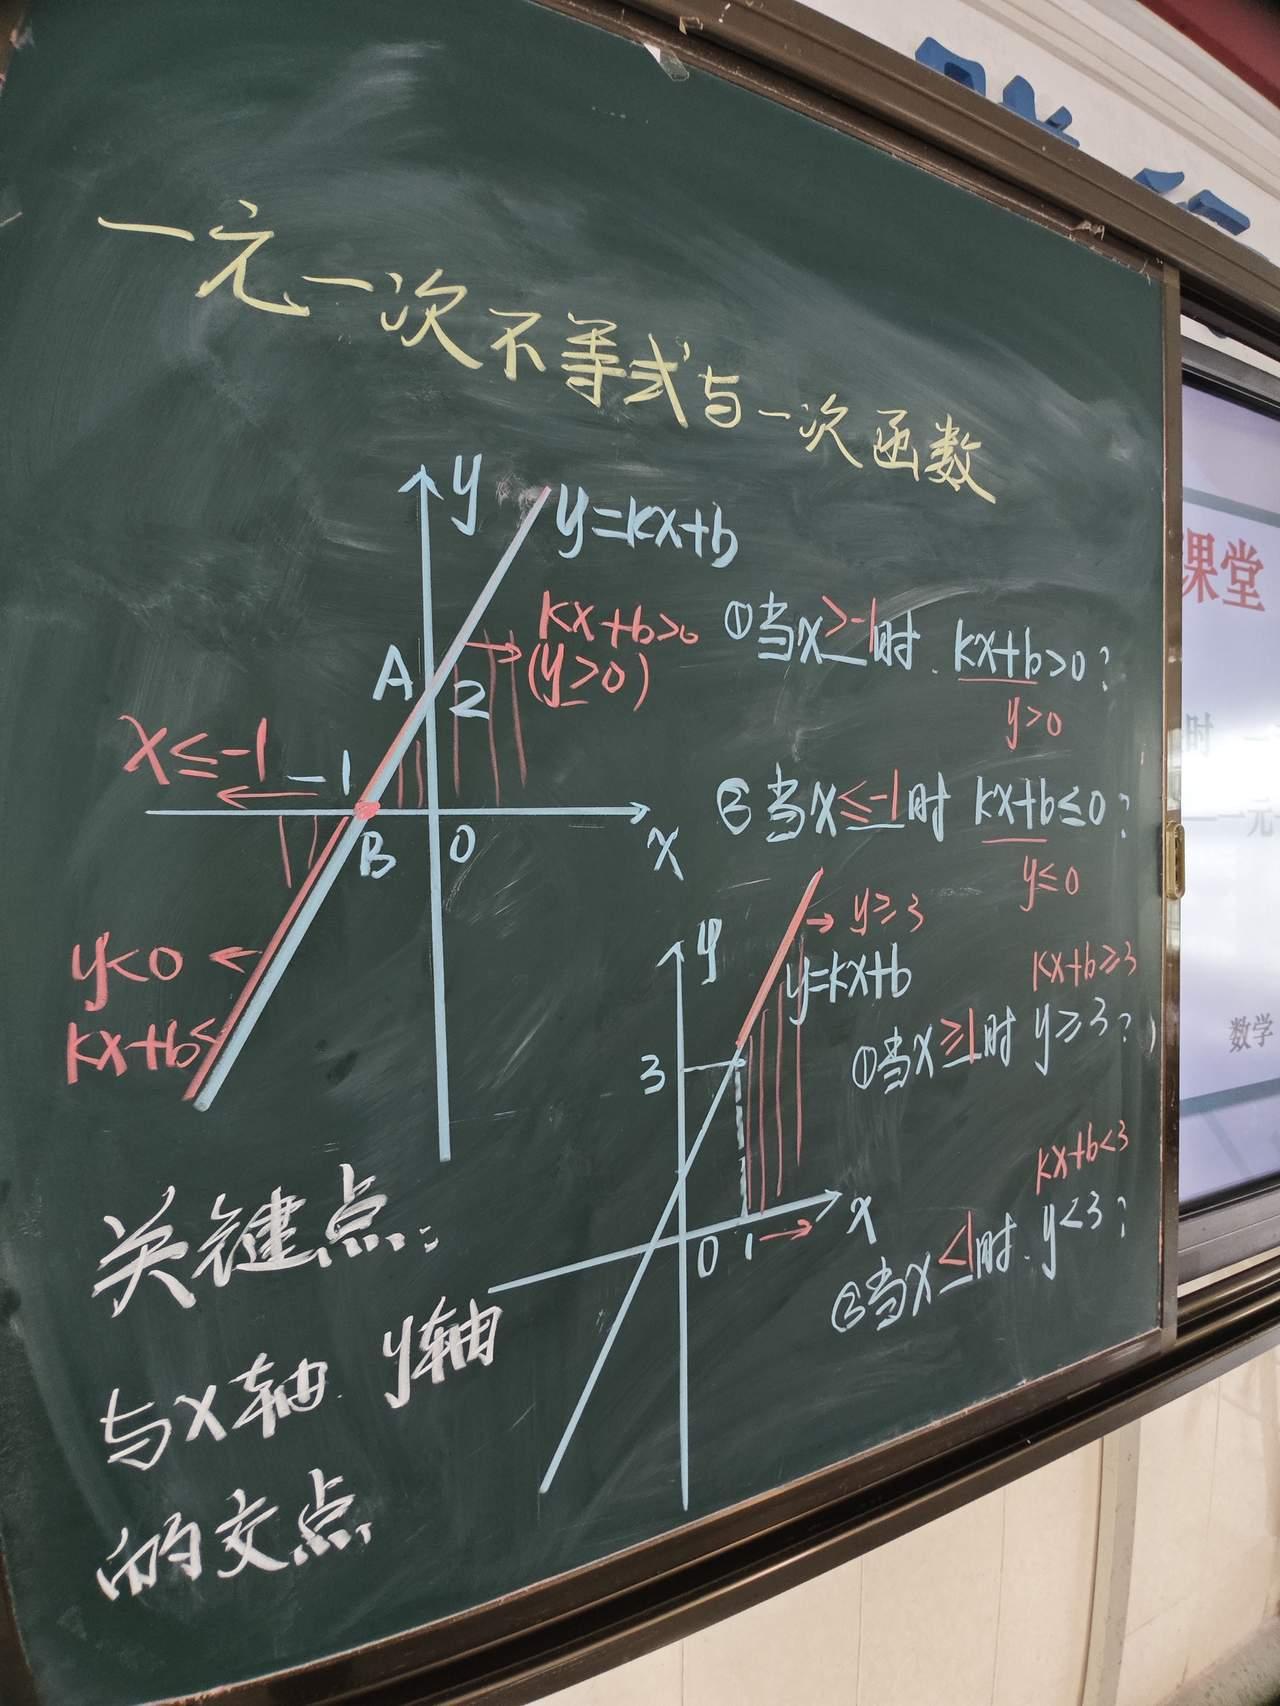 一元一次不等式与一次函数
y
y=kx+b
kx+b>0
(y>0)
A
2
x≤-1
-1
B
O
x
y<0
kx+b≤
①当x>-1时. kx+b>0?
y>0
②当x≤-1时 kx+b≤0?
y≤0
y
y≥3
y=kx+b
3
O
1
x
kx+b≥3
①当x≥1时 y≥3?
kx+b<3
②当x<1时. y<3?
关键点:
与x轴. y轴
的交点
课堂
时
一元
数学